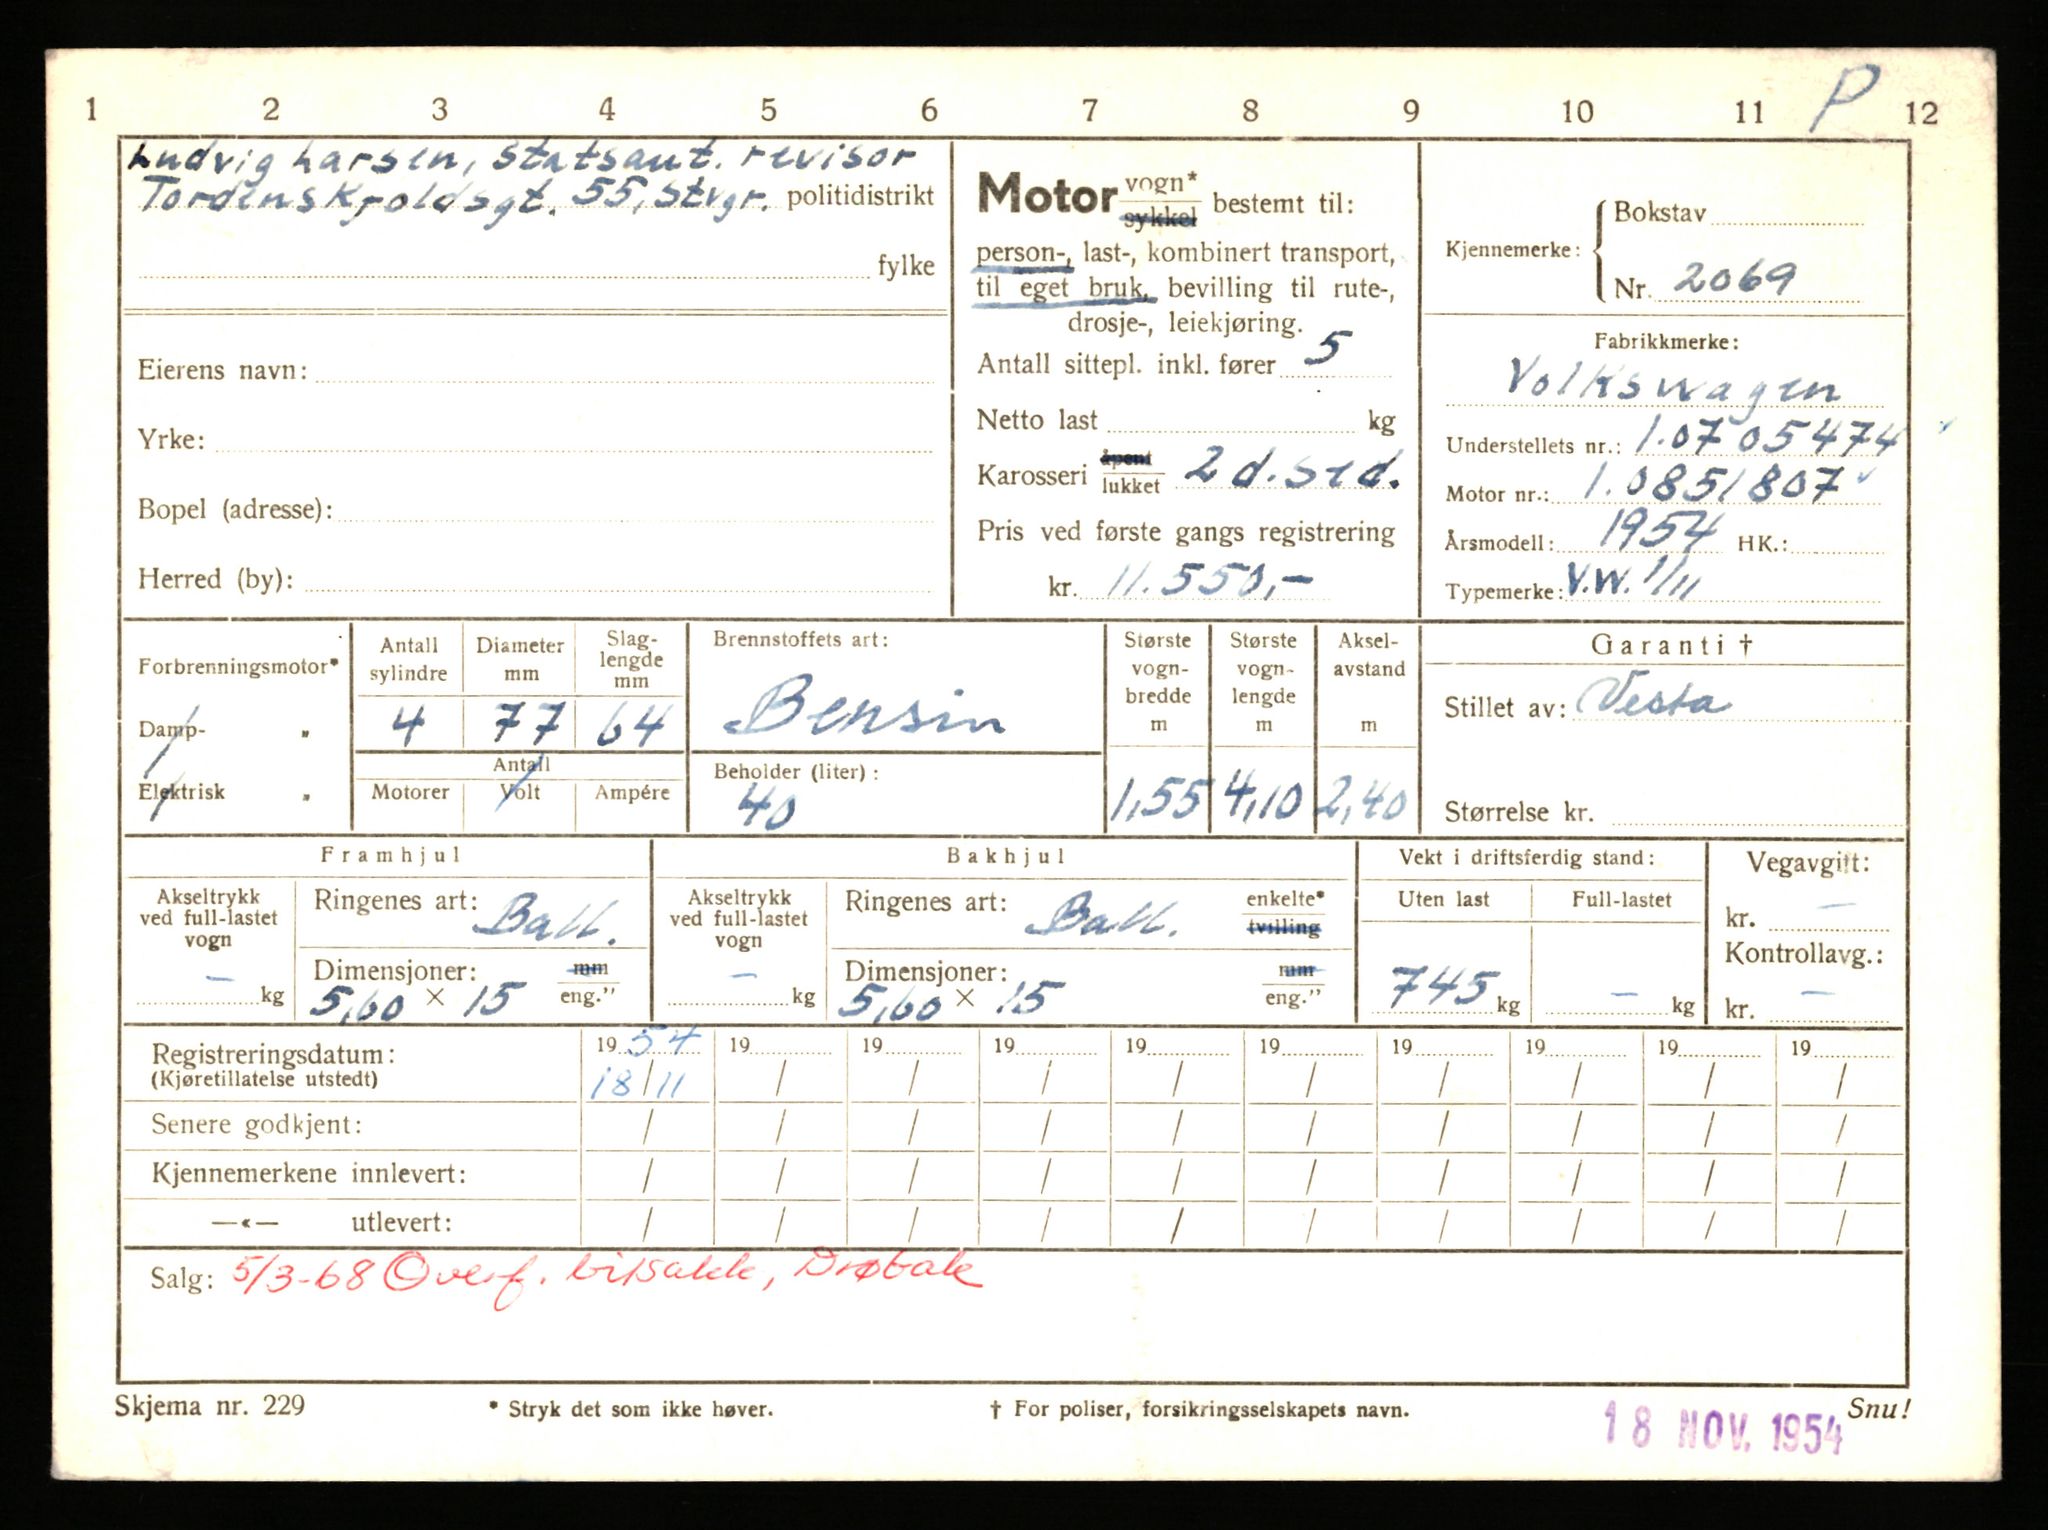 P
1 2 3 4 5 6 7 8 9 10 11 12
Ludvig Larsen, Statsaut. revisor
Tordenskjoldsgt. 55, Stvgr. politidistrikt
fylke
Eierens navn:
Yrke:
Bopel (adresse):
Herred (by):
Motor vogn* sykkel bestemt til:
person-, last-, kombinert transport,
til eget bruk, bevilling til rute-,
drosje-, leiekjøring.
Antall sittepl. inkl. fører 5
Netto last kg
Karosseri åpent lukket 2 d. sed.
Pris ved første gangs registrering
kr. 11.550,-
Kjennemerke: Bokstav
Nr. 2069
Fabrikkmerke:
Volkswagen
Understellets nr.: 1.0705474
Motor nr.: 1.0851807
Årsmodell: 1954 HK.:
Typemerke: V.W. 1/11
Forbrenningsmotor*
Damp- "
Elektrisk "
Antall sylindre
Diameter mm
Slag-lengde mm
4 77 64
Antall
Motorer Volt Ampére
Brennstoffets art:
Bensin
Beholder (liter):
40
Største vogn-bredde m
1,55
Største vogn-lengde m
4,10
Aksel-avstand m
2,40
Garanti †
Stillet av: Vesta
Størrelse kr.
Framhjul
Akseltrykk ved full-lastet vogn
– kg
Ringenes art: Ball.
Dimensjoner: mm eng."
5,60 × 15
Bakhjul
Akseltrykk ved full-lastet vogn
– kg
Ringenes art: Ball. enkelte* tvilling
Dimensjoner: mm eng."
5,60 × 15
Vekt i driftsferdig stand:
Uten last Full-lastet
745 kg – kg
Vegavgift:
kr. –
Kontrollavg.:
kr. –
Registreringsdatum: 19 54 19 19 19 19 19 19 19 19 19
(Kjøretillatelse utstedt) 18/11 / / / / / / / / /
Senere godkjent: / / / / / / / / / /
Kjennemerkene innlevert: / / / / / / / / / /
—«— utlevert: / / / / / / / / / /
Salg: 5/3-68 Overf. bilsakk, Drøbak
Skjema nr. 229 * Stryk det som ikke høver. † For poliser, forsikringsselskapets navn. Snu!
18 NOV. 1954